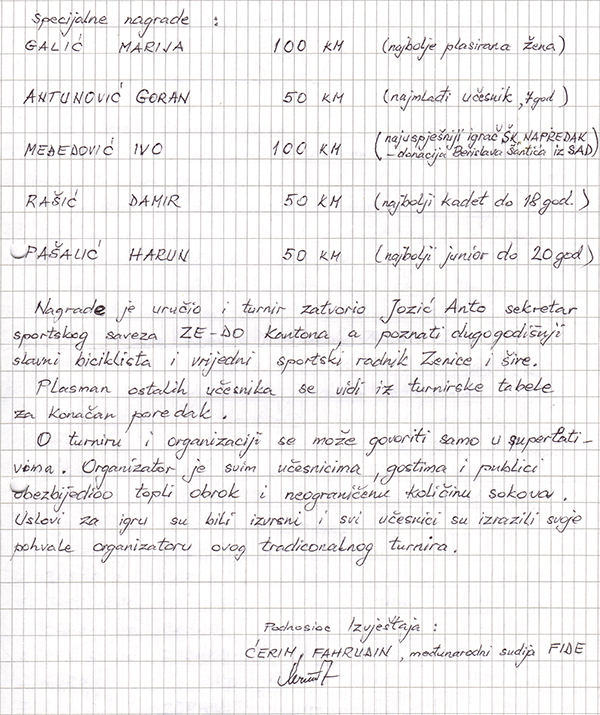 Specijalne nagrade :
GALIĆ MARIJA 100 KM (najbolje plasirana žena)
ANTUNOVIĆ GORAN 50 KM (najmlađi učesnik, 7god)
MEĐEDOVIĆ IVO 100 KM (najuspješniji igrač ŠK NAPREDAK
- donacija Berislava Šantića iz SAD)
RAŠIĆ DAMIR 50 KM (najbolji kadet do 18god.)
PAŠALIĆ HARUN 50 KM (najbolji junior do 20god)
Nagrade je uručio i turnir zatvorio Jozić Anto sekretar
sportskog saveza ZE-DO Kantona, a poznati dugogodišnji
slavni biciklista i vrijedni sportski radnik Zenice i šire.
Plasman ostalih učesnika se vidi iz turnirske tabele
za konačan poredak.
O turniru i organizaciji se može govoriti samo u superlati-
vima. Organizator je svim učesnicima, gostima i publici
obezbijedio topli obrok i neograničenu količinu sokova.
Uslovi za igru su bili izvrsni i svi učesnici su izrazili svoje
pohvale organizatoru ovog tradiconalnog turnira.
Podnosioc Izvještaja :
ĆERIM, FAHRUDIN, međunarodni sudija FIDE